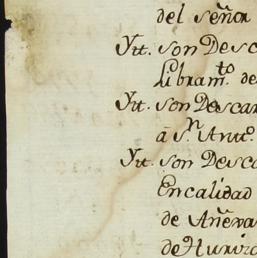 del señor
Ytt. son Desc
Libram.to de
Ytt. son Descar
a S.n Anto.
Ytt. son Desca
Encalidad
de Añera
de Hunize